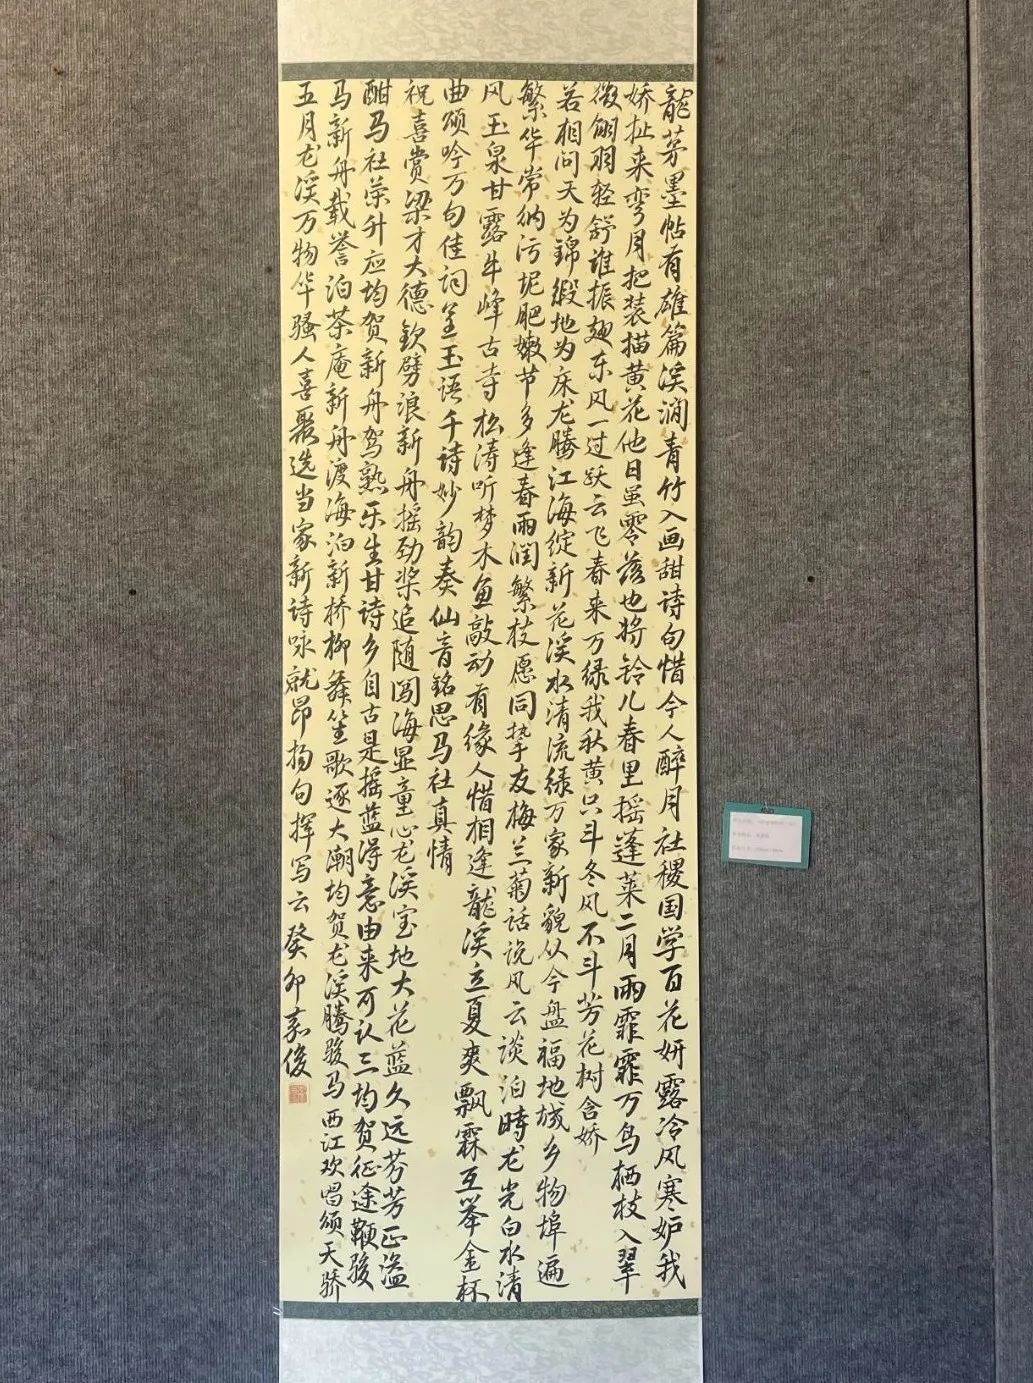 龍茅墨帖有雄篇溪澗青竹入画甜诗句惜今人醉月社稷国学百花妍露冷风寒妒我
娇扯来弯月把装描黄花他日虽零落也将铃儿春里摇蓬莱二月雨霏霏万鸟栖枝入翠
微翩羽轻舒谁振翅东风一过跃云飞春来万绿我秋黄只斗冬风不斗芳花树含娇
若相问天为錦緞地为床龙腾江海绽新花溪水清流绿万家新貌从今盘福地城乡物埠遍
繁华常纳污坭肥嫩节多逢春雨润繁枝愿同挚友梅兰菊话说风云谈泊時龙光白水清
风玉泉甘露牛峰古寺松涛听梦木鱼敲动有缘人惜相逢龍溪立夏爽飘霖互举金杯
曲颂吟万句佳词呈玉语千诗妙韵奏仙音铭思马社真情
祝喜赏梁才大德钦劈浪新舟摇劲桨追随闯海显童心龙溪宝地大花蓝久远芬芳正溢
酣马社荣升应均贺新舟驾熟乐生甘诗乡自古是摇蓝得意由来可认三均贺征途鞭骏
马新舟载誉泊茶庵新舟渡海泊新桥柳舞笙歌逐大潮均贺龙溪腾骏马西江欢唱颂天骄
五月龙溪万物华骚人喜聚选当家新诗咏就昂扬句挥写云癸卯嘉俊